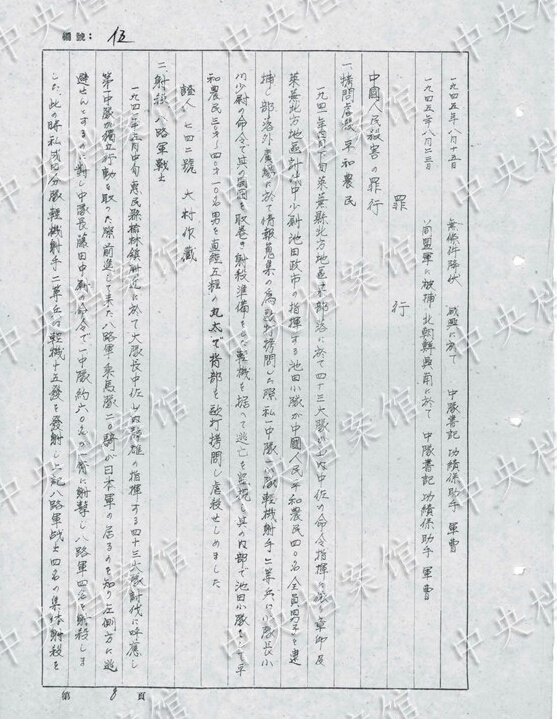 編號： 伍
一九四五年八月十五日 無條件降伏 咸興に於て 中隊書記 功績係助手 軍曹
一九四五年八月二三日 同盟軍に被捕 北朝鮮 興南に於て 中隊書記 功績係助手 軍曹
罪 行
中國人民殺害の罪行
一、拷問虐殺 平和農民
一九四一年 月 旬 萊蕪縣北方地區 部落に於て四十三大隊 中佐の命令指揮に 章仰及
萊蕪北方地區討伐中 少尉 池田政市の指揮する池田小隊が中國人民平和農民四〇名全員男子を逮
捕し部落外廣場に於て情報蒐集の為 打拷問した際 私 一中隊 輕機射手二等兵は小隊長小
川少尉の命令で其の 圍を取巻き射殺準備をした輕機を据へて逃亡を監視し其の内部で池田小隊をして平
和農民三〇才～四〇才一〇名男を直徑五糎の丸太で背部を毆打拷問し虐殺せしめました
証人 七四二號 大村作藏
二、射殺 八路軍戰士
一九四一年 月中旬 惠民縣 林鎮附近に於て大隊長中佐 山 雄の指揮する四十三大隊討伐に呼應し
第一中隊が獨立行動を取った際前進して来た八路軍乘馬隊二〇騎が日本軍の居るのを知り左側方に逃
避せんとするのに對し中隊長藤田中尉の命令で一中隊約六〇名が 齊に射擊し八路軍四名を射殺しま
した、此の時私は 分隊輕機射手二等兵で輕機十五發を發射し 記八路軍戰士四名の集 射殺を
第 8 頁
中央档案馆